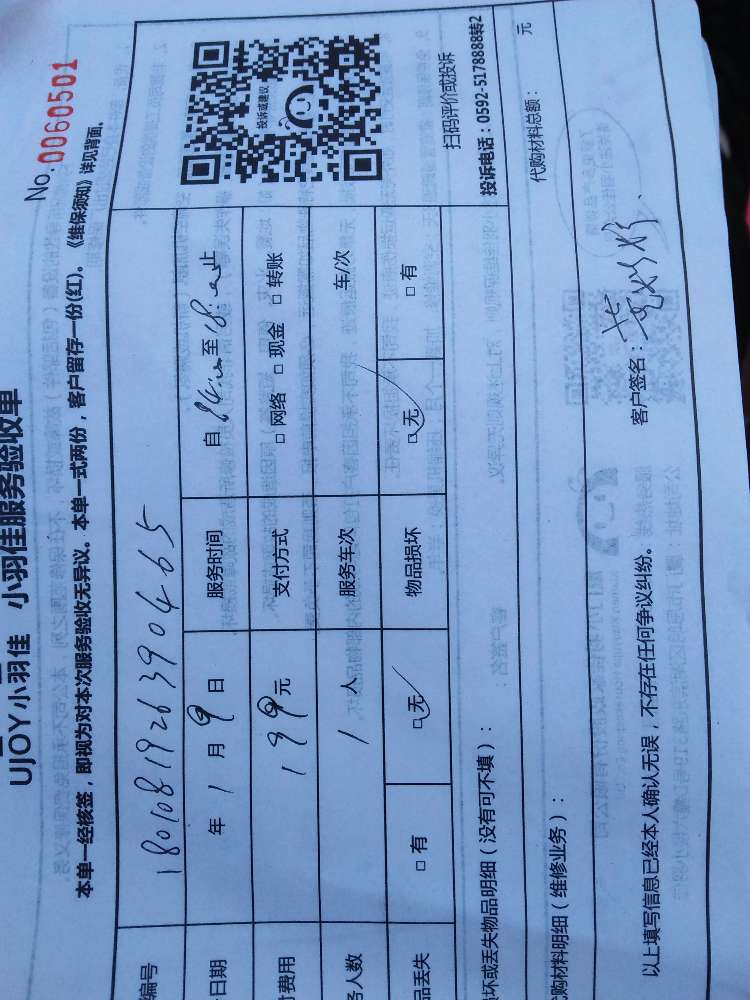 UJOY小羽佳 小羽佳服务验收单
No. 0060501
本单一经核签，即视为对本次服务验收无异议。本单一式两份，客户留存一份(红)。《维保须知》详见背面。
编号 18010819263390465
投诉或建议
日期 年 1 月 9 日 服务时间 自 14:00 至 18:00 止
费用 199 元 支付方式 □ 网络 □ 现金 □ 转账
人数 1 人 服务车次 车/次
丢失 □ 有 □ 无 物品损坏 □ 无 □ 有
扫码评价或投诉
投诉电话：0592-5178888转2
坏或丢失物品明细（没有可不填）：
购材料明细（维修业务）： 代购材料总额： 元
以上填写信息已经本人确认无误，不存在任何争议纠纷。 客户签名：